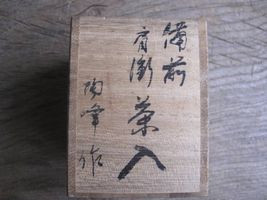 備前
肩衝茶入
陶峰作